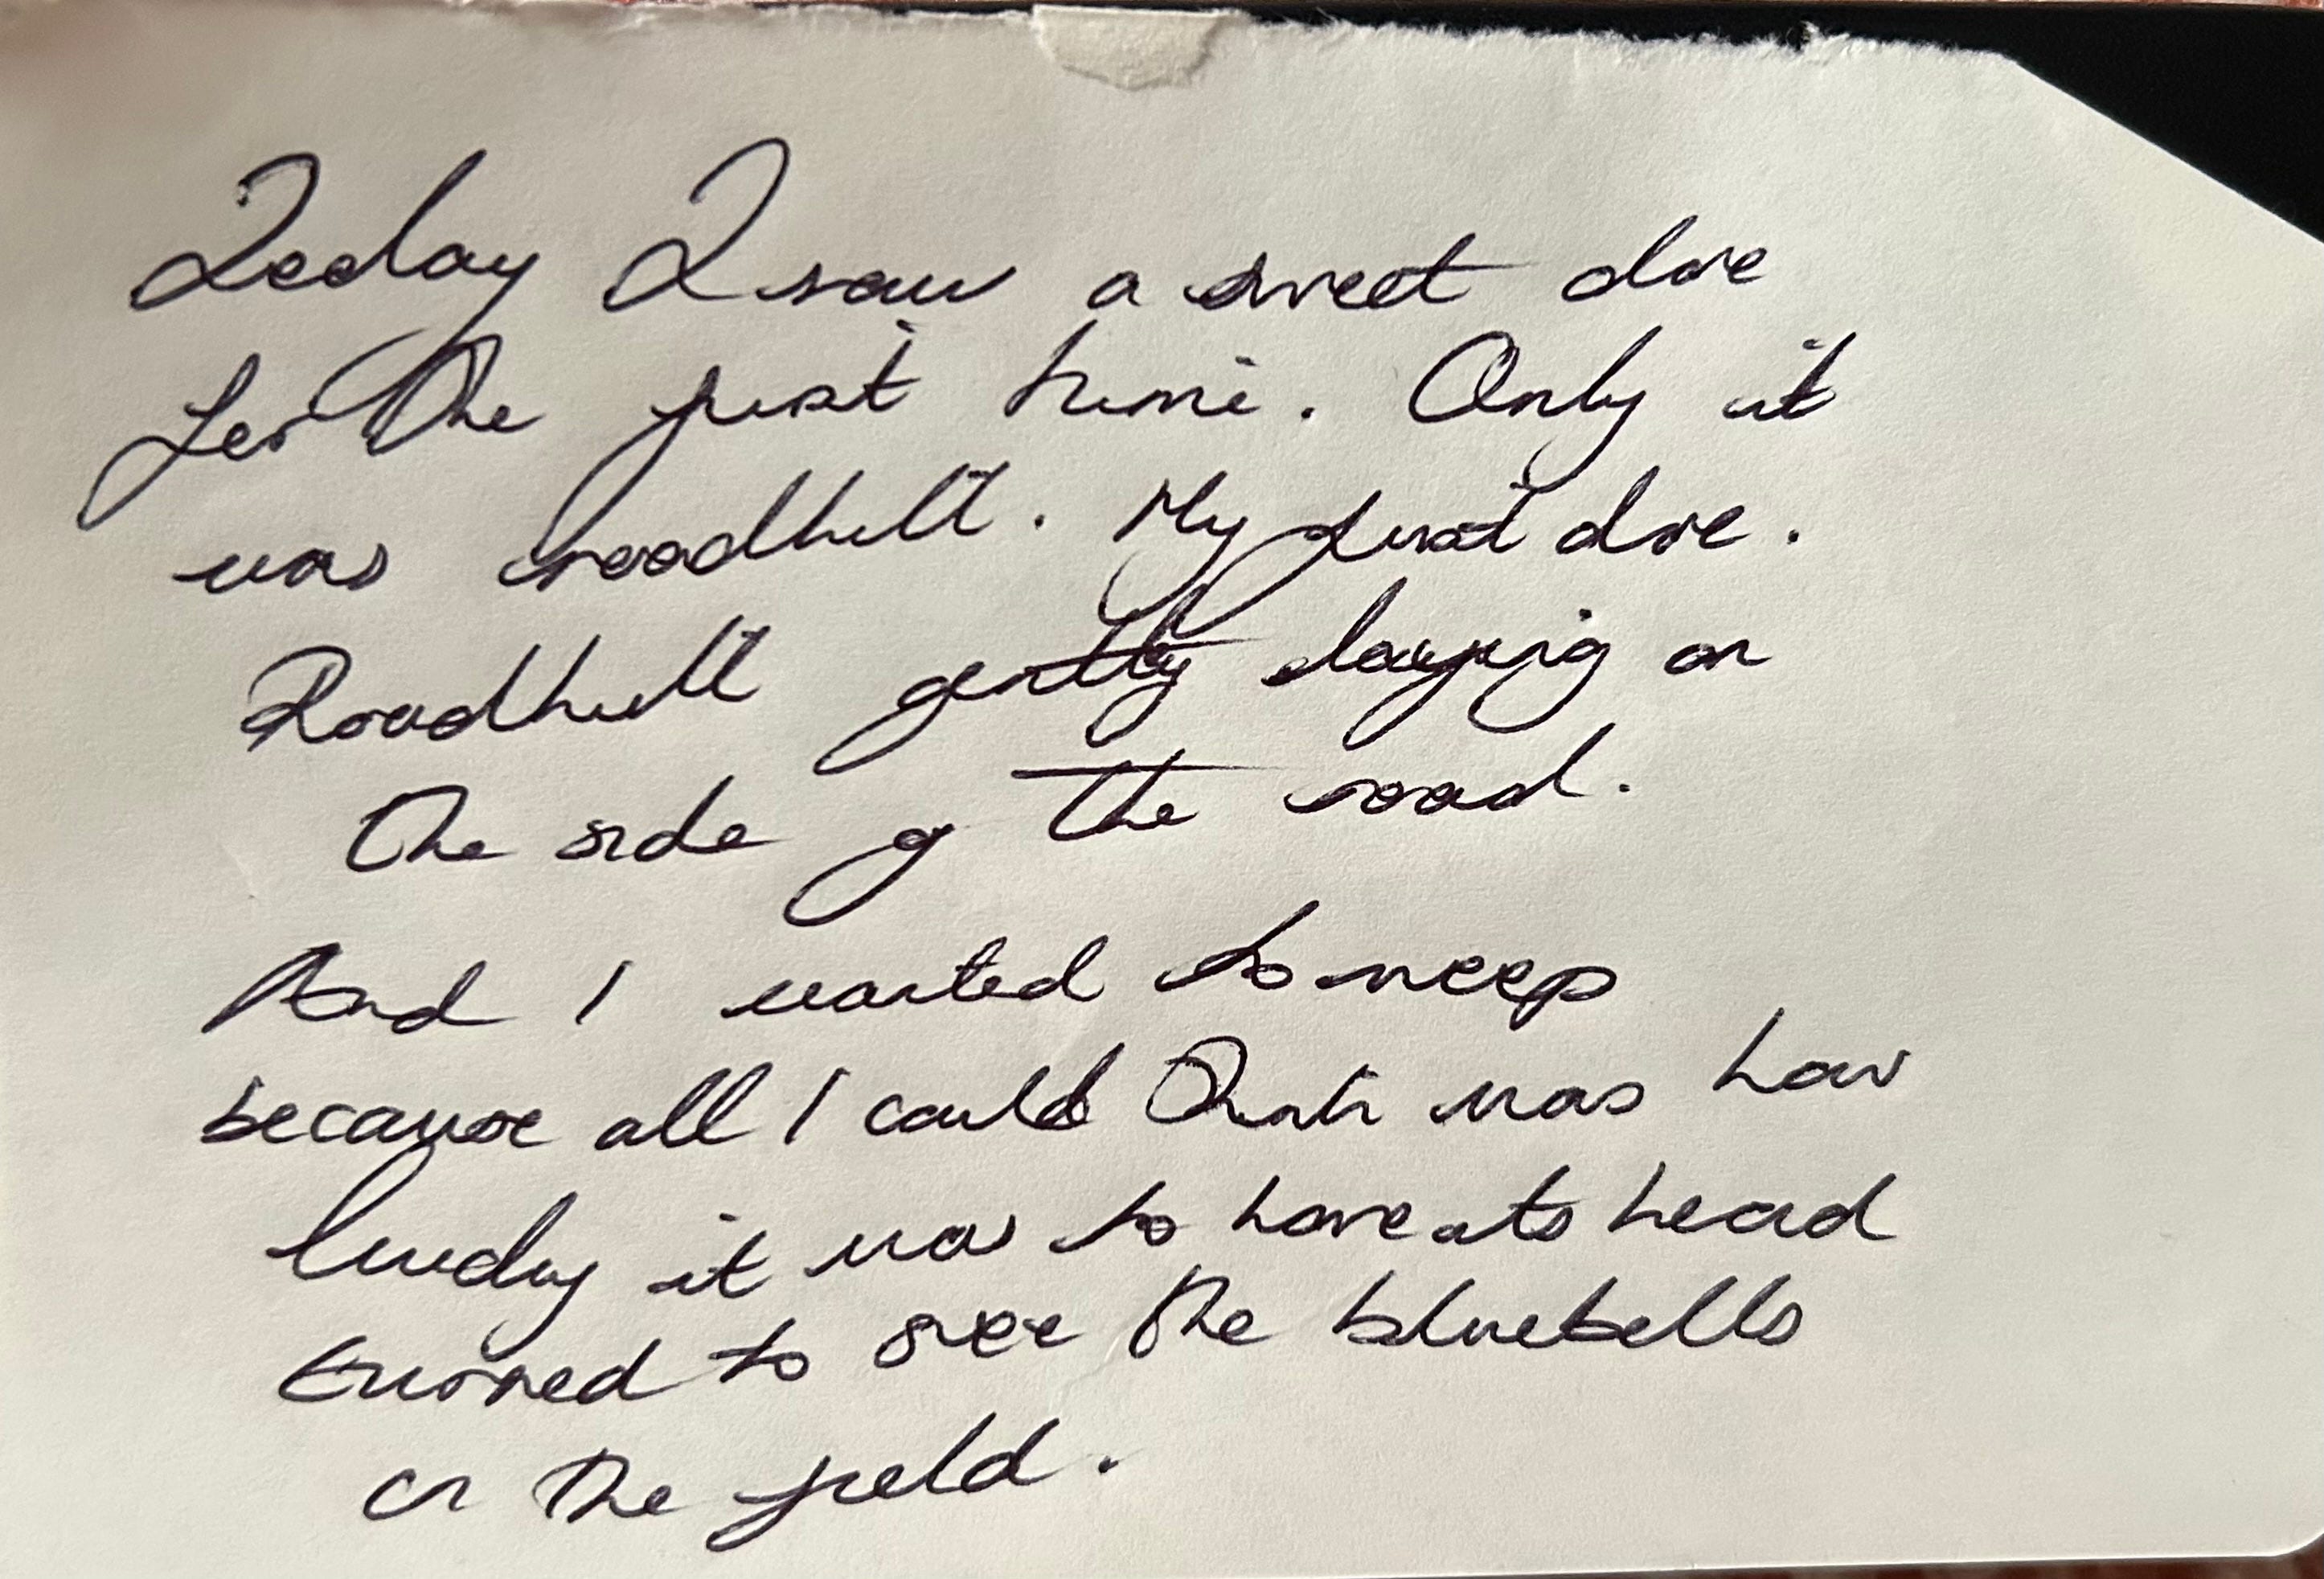 Today I saw a sweet doe
for the first time. Only it
was roadkill. My first doe.
Roadkill gently sleeping on
the side of the road.
And I wanted to weep
because all I could think was how
lucky it was to have its head
turned to see the bluebells
on the field.